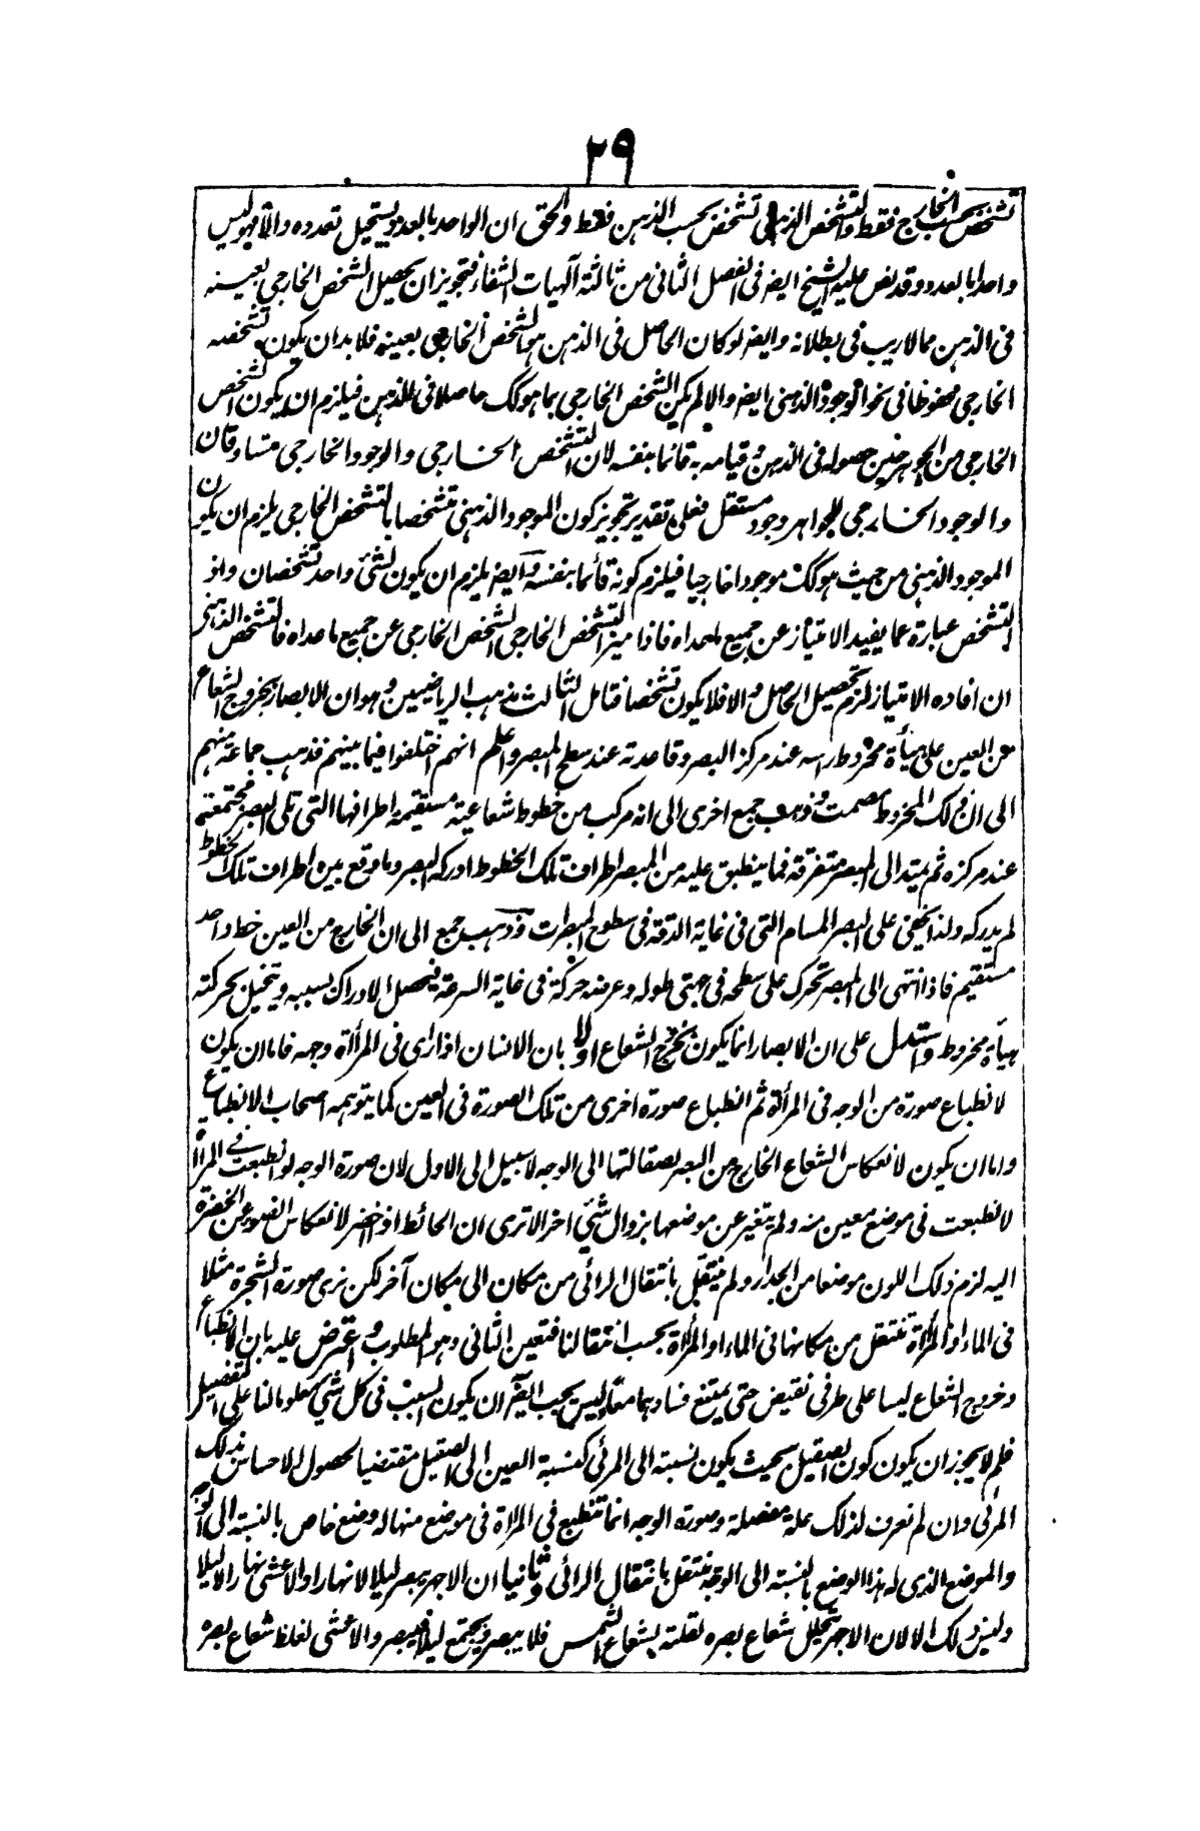 ٢٩
تشخص بحسب الخارج فقط والتشخص الذهني تشخص بحسب الذهن فقط والحق ان الواحد بالعدد يستحيل تعدده والا فهو ليس
واحدا بالعدد وقد نص عليه الشيخ ايضا فى الفصل الثانى من ثالثة آلهيات الشفاء فتجويز ان يحصل الشخص الخارجى بعينه
فى الذهن مما لا ريب فى بطلانه وايضا لو كان الحاصل فى الذهن هو الشخص الخارجى بعينه فلا بد ان يكون تشخصه
الخارجى محفوظا فى نحو الوجود الذهنى ايضا والا لم يكن الشخص الخارجى بما هو كك حاصلا فى الذهن فيلزم ان يكون الشخص
الخارجى من الجوهر حين حصوله فى الذهن وقيامه به قائما بنفسه لان التشخص الخارجى والوجود الخارجى متساوقان
والوجود الخارجى للجواهر وجود مستقل فعلى تقدير تجويز كون الموجود الذهنى متشخصا بالتشخص الخارجى يلزم ان يكون
الموجود الذهنى من حيث هو كك موجودا خارجيا فيلزم كونه قائما بنفسه وايضا يلزم ان يكون لشئ واحد تشخصان واذ
التشخص عبارة عما يفيد الامتياز عن جميع ما عداه فاذا ميز التشخص الخارجى الشخص الخارجى عن جميع ما عداه فالتشخص الذهنى
ان افاده الامتياز لزم تحصيل الحاصل والا فلا يكون تشخصا فتامل الثالث مذهب الرياضيين وهو ان الابصار بخروج الشعاع
من العين على هيأة مخروط راسه عند مركز البصر وقاعدته عند سطح المبصر واعلم انهم اختلفوا فيما بينهم فذهب جماعة منهم
الى ان ذلك المخروط مصمت وذهب جمع اخرى الى انه مركب من خطوط شعاعية مستقيمة اطرافها التى تلى البصر مجتمعة
عند مركزه ثم يمتد الى المبصر متفرقة فما ينطبق عليه من المبصر اطراف تلك الخطوط ادركه البصر وما وقع بين اطراف تلك الخطوط
لم يدركه ولذا يخفى على البصر المسام التى فى غاية الدقة فى سطوح المبصرات وذهب جمع الى ان الخارج من العين خط واحد
مستقيم فاذا انتهى الى المبصر تحرك على سطحه فى جهتى طوله وعرضه حركة فى غاية السرعة فيحصل الادراك بسببه ويتخيل بحركته
هيأة مخروط واستدل على ان الابصار انما يكون بخروج الشعاع اولا بان الانسان اذا راى فى المرأة وجهه فاما ان يكون
لانطباع صورة من الوجه فى المرأة ثم انطباع صورة اخرى من تلك الصورة فى العين كما يتوهمه اصحاب الانطباع
واما ان يكون لانعكاس الشعاع الخارج من البصر بصقالتها الى الوجه لا سبيل الى الاول لان صورة الوجه لو انطبعت فى المرأة
لانطبعت فى موضع معين منه ولم يتغير عن موضعها بزوال شئ اخر الا ترى ان الحائط اذا اخضر لانعكاس الضوء عن الخضرة
اليه لزم ذلك اللون موضعا من الجدار ولم ينتقل بانتقال الرائى من مكان الى مكان آخر لكن نرى صورة الشجرة مثلا
فى الماء او المرأة تنتقل من مكانها فى الماء او المرأة بحسب انتقالنا فتعين الثانى وهو المطلوب واعترض عليه بان الانطباع
وخروج الشعاع ليسا على طرفى نقيض حتى يمتنع فسادهما معا وليس يجب ايضا ان يكون السبب فى كل شئ معلوما لنا على التفصيل
فلم لا يجوز ان يكون كون الصقيل بحيث يكون نسبته الى المرئى كنسبة العين الى الصقيل مقتضيا لحصول الاحساس بذلك
المرئى وان لم نعرف لذلك علة مفصلة وصورة الوجه انما تنطبع فى المرأة فى موضع منها له وضع خاص بالنسبة الى الوجه
والموضع الذى له هذا الوضع بالنسبة الى الوجه ينتقل بانتقال الرائى وثانيا ان الاجهر يبصر ليلا لا نهارا والاعشى نهارا لا ليلا
وليس ذلك الا لان الاجهر يتحلل شعاع بصره لقلته بشعاع الشمس فلا يبصر ويجتمع ليلا فيبصر والاعشى لغلظ شعاع بصره